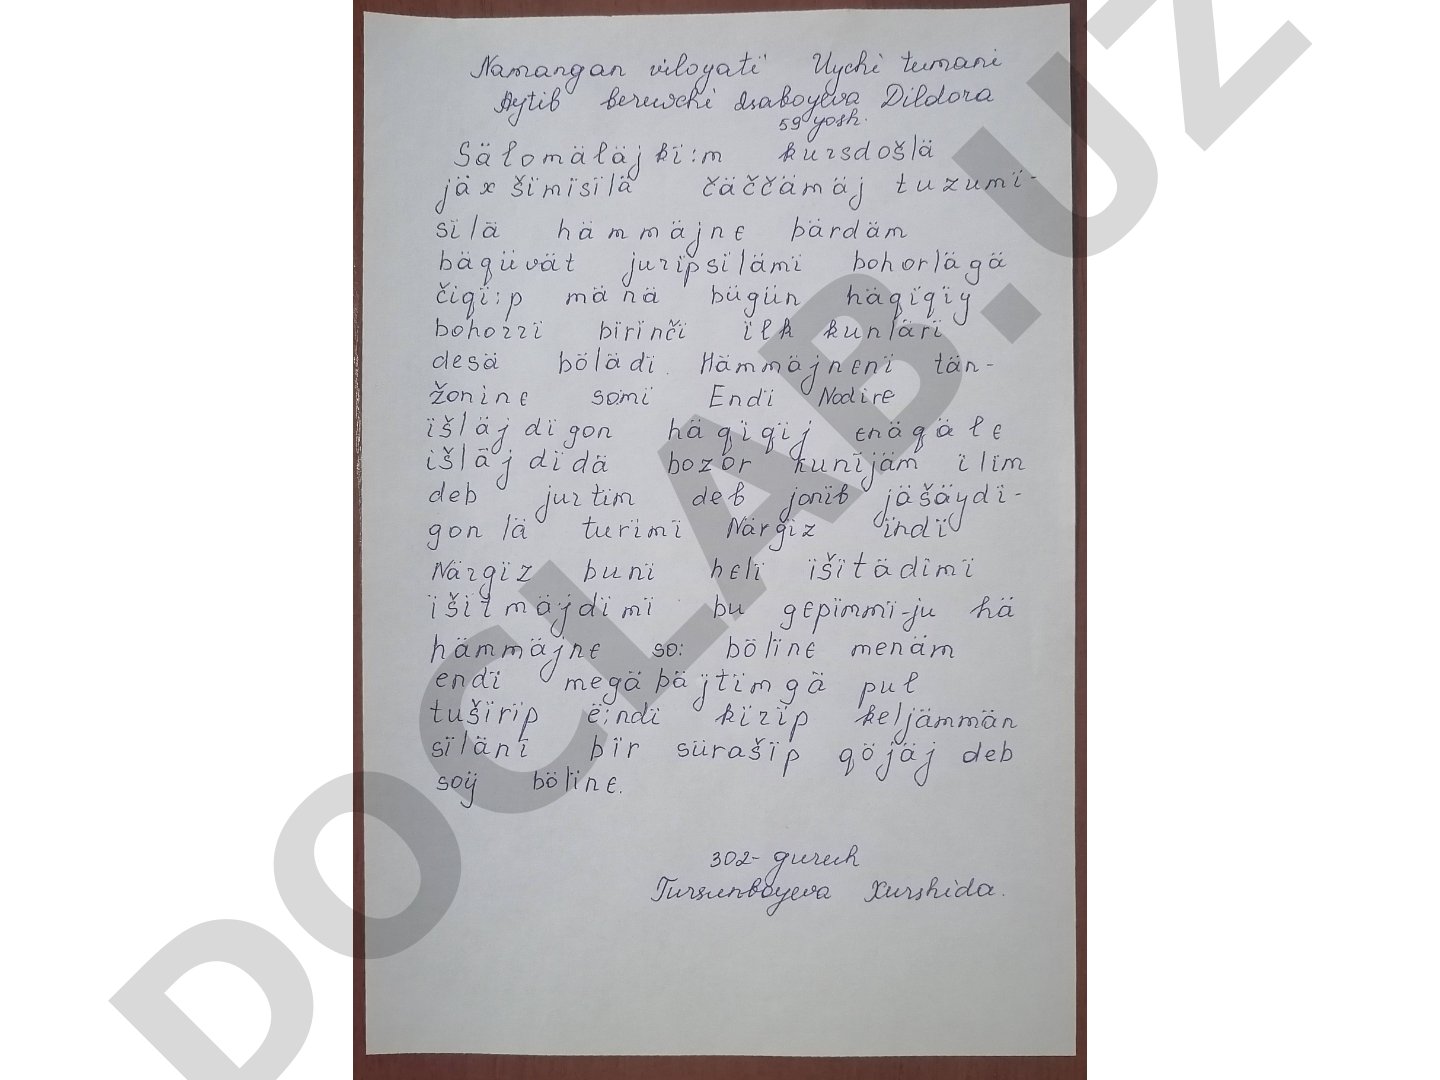 Namangan viloyati Uychi tumani
Aytib beruvchi Isaboyeva Dildora
59 yosh.
Säłomäłäj kï:m kursdošlä
jäx šïmïsïlä čäččämäj tuzumï-
sïlä hämmäjnє bärdäm
bäqüvät jurïpsïlämï bohorlägä
čiqï:p mänä bügün häqïqïy
bohorrï bïrïnčï ïłk kunlärï
desä bölädï. Hämmäjnєnï tän-
žoninє somï Endï Nodirє
ïšläjdïgon häqïqïj єnäqälє
ïšläjdïdä bozor kunïjäm ïlïm
deb jurtïm deb jonïb jäšäydï-
gonlä turïmï Närgïz ïndï
Närgïz bunï hєlï ïšïtädïmï
ïšïtmäjdïmï bu gєpïmmï-ju hä
hämmäjnє so: bölïnє menäm
endï megä päjtïmgä puł
tušïrïp ë:ndï kïrïp keljämmän
sïlänï bïr sürašïp qöjäj deb
soÿ bölïnє.
302- guruh
Tursunboyeva Xurshida.
DOCLAB.UZ